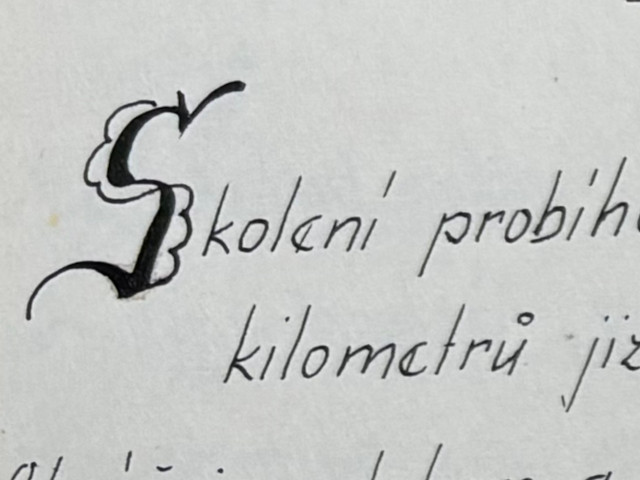 Školení probíh
kilometrů jiz